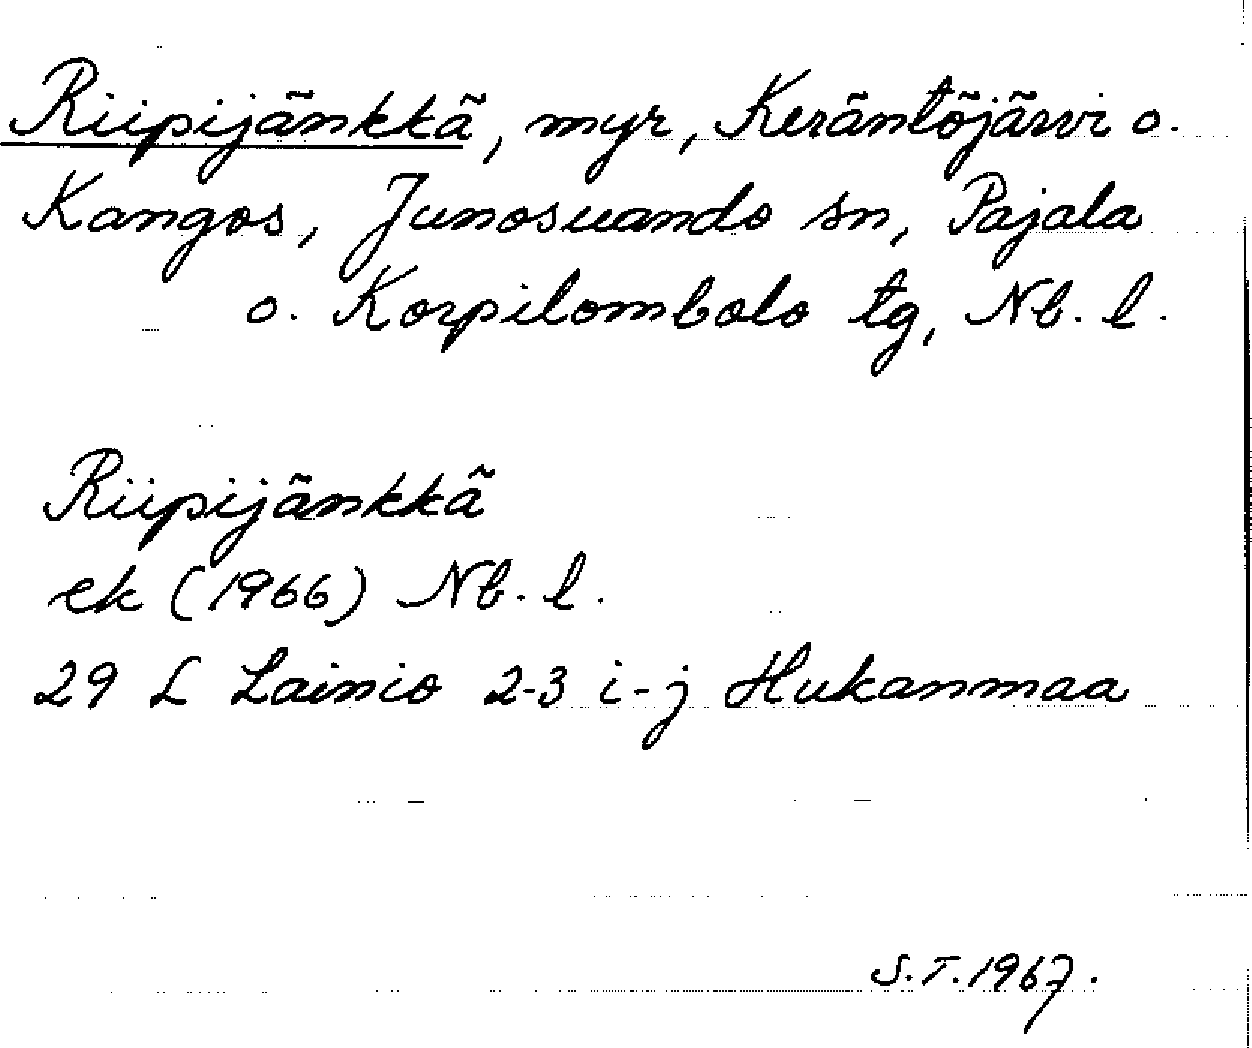 Riipijänkkä, myr, Keräntöjärvi o.
Kangos, Junosuando sn, Pajala
o. Korpilombolo tg, Nb. l.
Riipijänkkä
ek (1966) Nb. l.
29 L Lainio 2-3 i-j Hukanmaa
S.T. 1967.